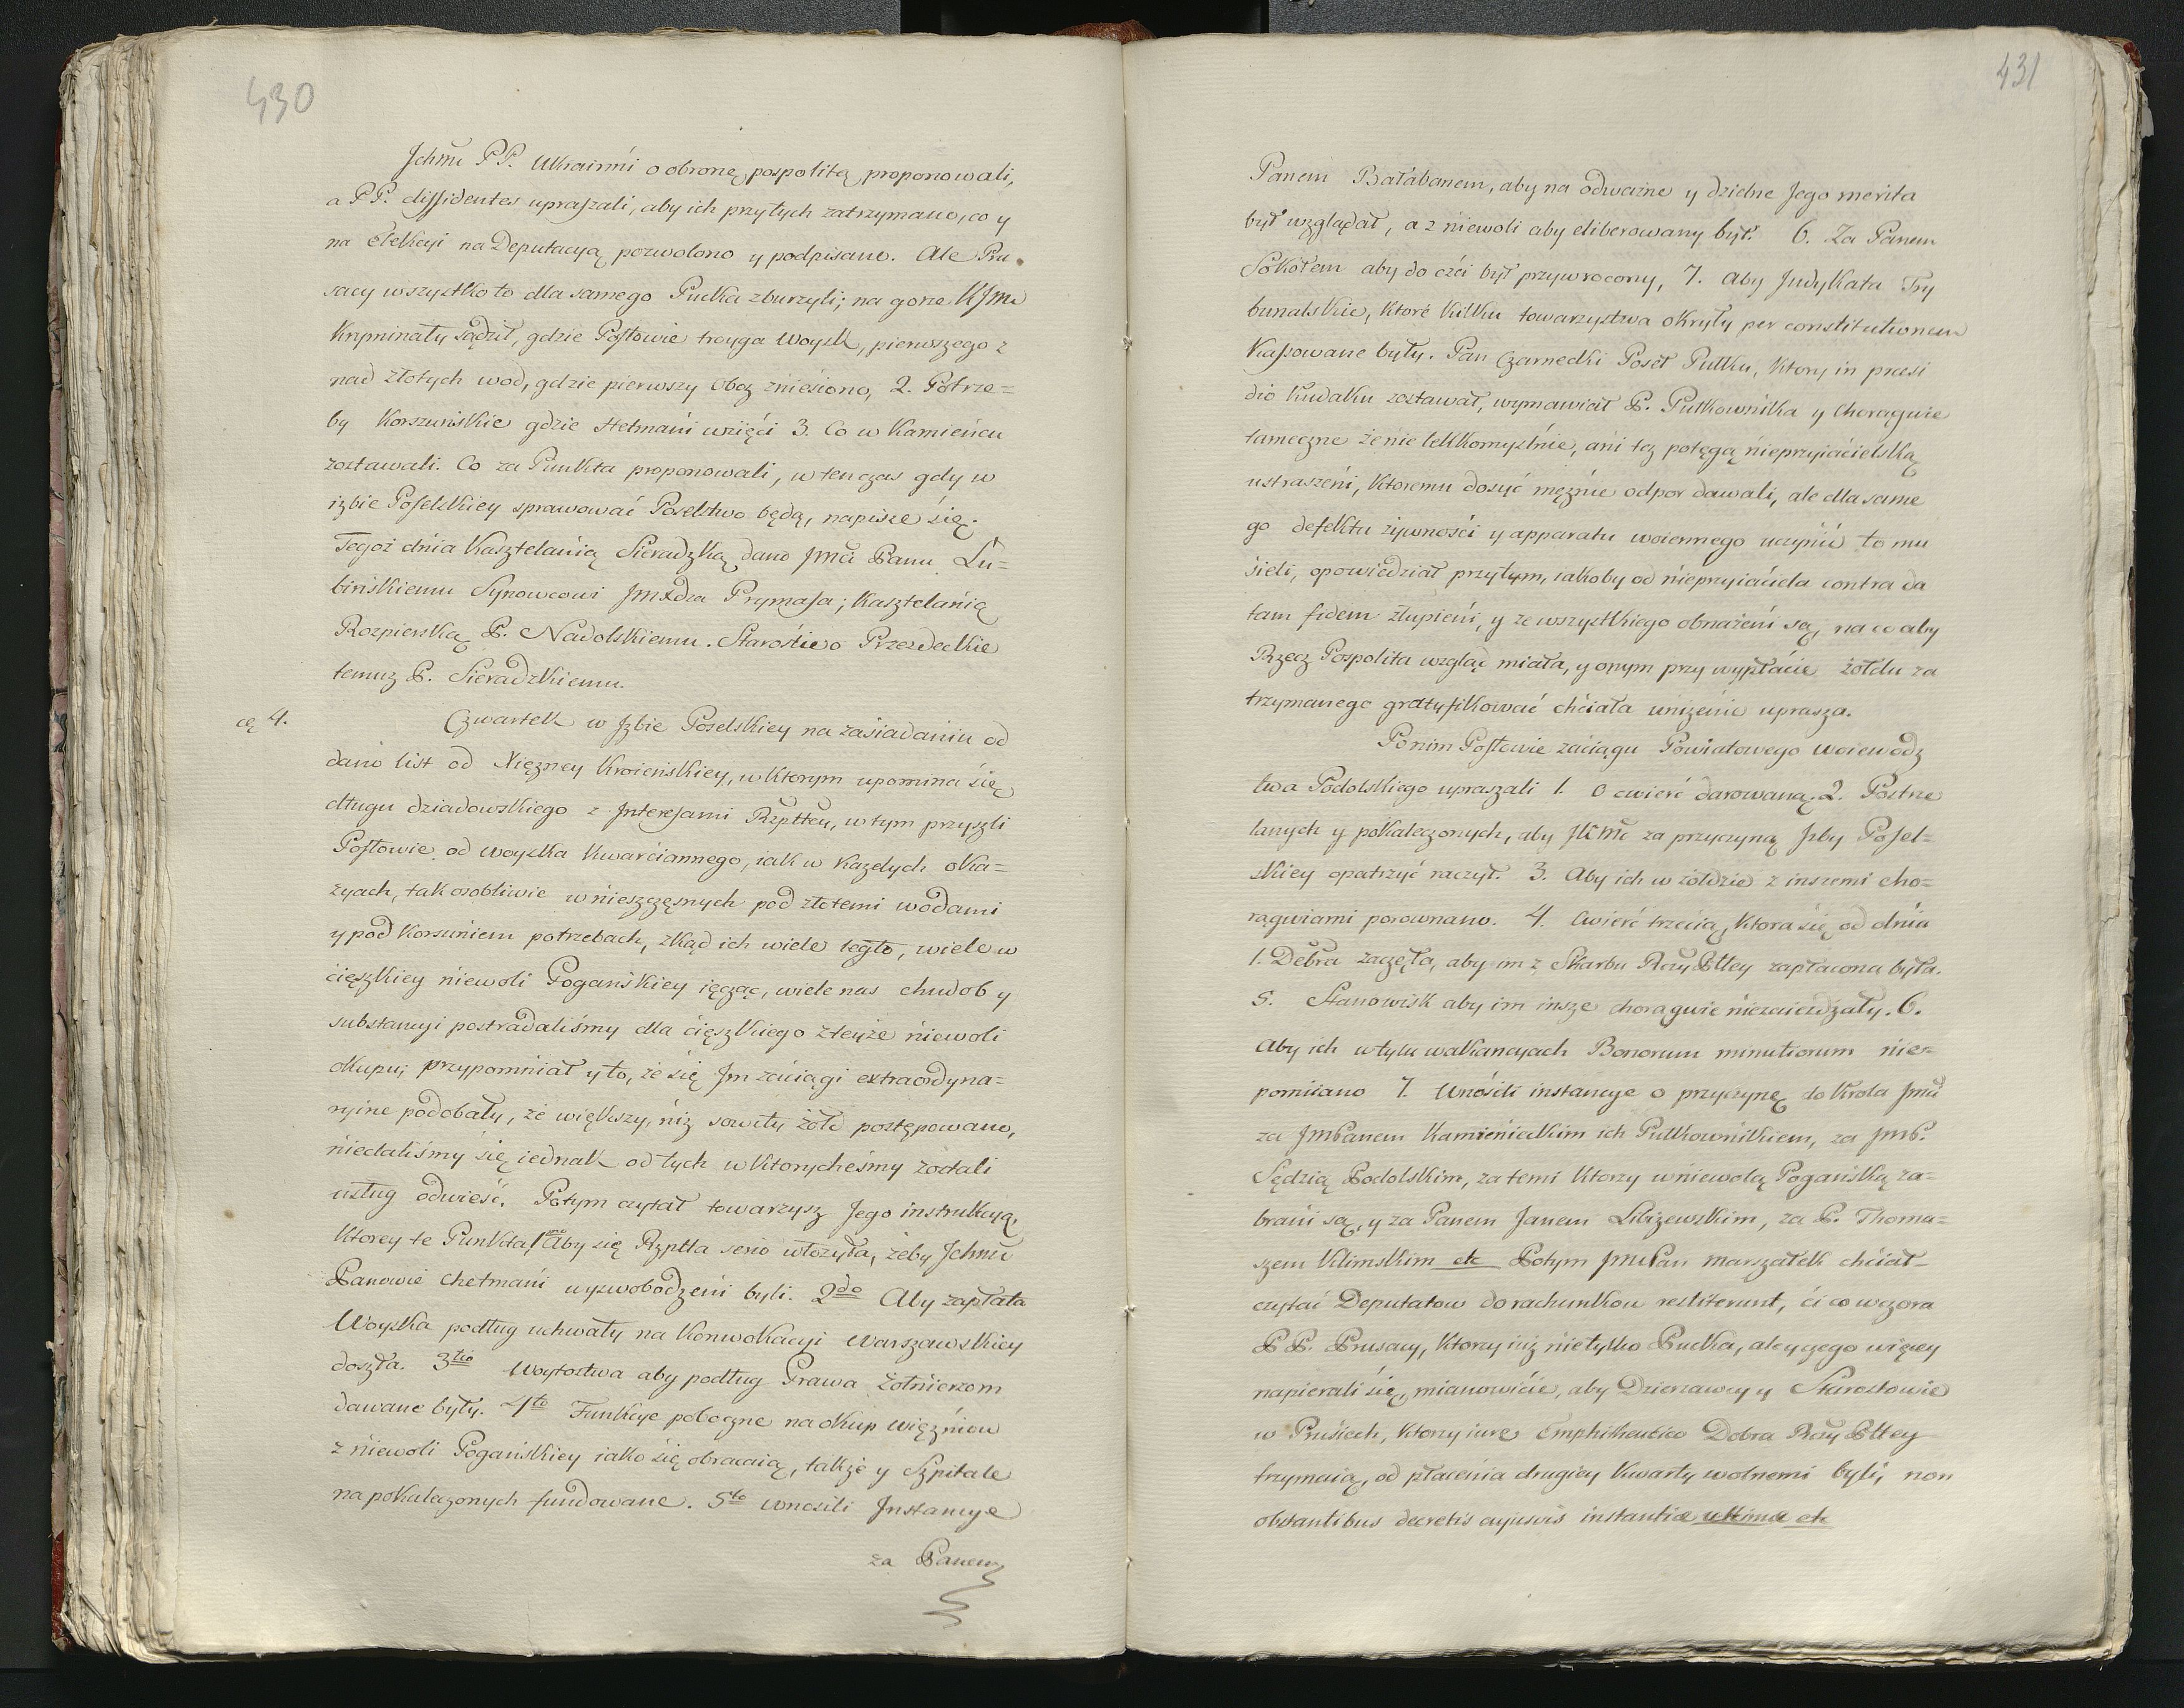 430
Jchmć PP. Ukrainni o obronę pospolitą proponowali,
a PP. dissidentes upraszali, aby ich przytych zatrzymano, co y
na elekcyi na Deputacyą pozwolono y podpisano. Ale Pru
sacy wszystko to dla samego Pucka zburzyli; na gorze KJmć
Kryminały sądził, gdzie Posłowie troyga Woysk, pierwszego z
nad złotych wod, gdzie pierwszy Oboz zniesiono, 2. Potrze=
by Korszuńskie gdzie Hetmani wzięći 3. Co w Kamieńcu
zostawali. Co za Punkta proponowali, w tenczas gdy w
izbie Poselskiey sprawować Poselstwo będą, napisze się.
Tegoż dnia Kasztelanią Sieradzką dano Jmći Panu Lu=
bińskiemu Synowcowi JmXdza Prymasa; Kasztelanią
Rozpierską P. Nadolskiemu. Starostwo Przezdeckie
temuz P. Sieradzkiemu.
cę 4.
Czwartek w Jzbie Poselskiey na zasiadaniu od
dano list od Xięzney Kroieńskiey, w ktorym upomina się
długu dziadowskiego z Jnteresami Rzptteu, w tym przyszli
Posłowie od woyska kwarciannego, iak w kazdych oka=
zyach, tak osobliwie w nieszczęsnych pod złotemi wodami
y pod Korsuniem potrzebach, zkąd ich wiele legło, wiele w
cięszkiey niewoli Pogańskiey ięcząc, wiele nas chudob y
substancyi postradaliśmy dla cięszkiego zteyże niewoli
okupu; przypomniał y to, że się Jm zaciągi extraordyna=
ryine podobały, że większy, niz sowity żołd postępowano,
niedaliśmy się iednak od tych w ktorycheśmy zostali
usług odwieść. Potym czytał towarzysz Jego instrukcyą,
ktorey te Punkta 1mo Aby się Rzptta serio włozyła, żeby Jchmć
Panowie Chetmani wyswobodzeni byli. 2do Aby zapłata
Woyska podług uchwały na Konwokacyi Warszawskiey
doszła. 3tio Woytostwa aby podług Prawa Żołnierzom
dawane były. 4to Funkcye poboczne na okup więzniow
z niewoli Pogańskiey iako się obracaią, także y Szpitale
na pokaleczonych fundowane. 5to Wnosili Jnstancye
za Panem
431
Panem Bałabanem, aby na odważne y dzielne Jego merita
był wzgląd dał, a z niewoli aby eliberowany był. 6. Za Panem
Sokołem aby do czći był przywrocony, 7. Aby Judykata Try
bunalskie, ktoré kilku towarzystwa okryły per constitutionem
kassowane były. Pan Czarnecki Poseł Pułku, ktory in præsi
dio Kudaku zostawał, wymawiał P. Pułkownika y Chorągwie
tameczne że nie lekkomyslnie, ani tez potęgą nieprzyiacielską
ustraszeni, ktoremu dosyć mężnie odpor dawali, ale dla same
go defektu żywności y apparatu woiennego uczynić to mu
sieli, opowiedział przytym, iakoby od nieprzyiaciela contra da
tam fidem złupieni, y ze wszystkiego obnażeni są, na co aby
Rzecz Pospolita wzgląd miała, y onym przy wypłacie żołdu za
trzymanego gratyfikować chciała uniżenie uprasza.
Ponim Posłowie zaciągu Powiatowego woiewodz
twa Podolskiego upraszali 1. O cwierć darowaną. 2. Postrze
lanych y pokaleczonych, aby JKMć za przyczyną Jzby Posel=
skiey opatrzyć raczył. 3. Aby ich w żołdzie z inszemi cho=
rągwiami porownano. 4. Cwierć trzecią, ktora się od dnia
1. Debra zaczęła, aby im z Skarbu RzyPltey zapłacona była.
5. Stanowisk aby im insze chorągwie niezaiezdzały. 6.
Aby ich w tylu wakancyach Bonorum minutiorum nie=
pomiiano 7. Wnosili instancye o przyczynę do Krola Jmći
za JmPanem Kamienieckim ich Pułkownikiem, za JmP.
Sędzią Podolskim, za temi ktorzy w niewolą Pogańską za=
brani są, y za Panem Janem Libizewskim, za P. Thoma=
szem Klimskim etc Potym JmćPan Marszałek chciał
czytać Deputatow do rachunkow restiterunt, ći co wczora
PP. Prusacy, ktorzy iuz nietylko Pucka, ale y czego więcey
napierali się, mianowicie, aby Dzierzawcy y Starostowie
w Prusiech, ktorzy iure Emphiteutico Dobra RzyPltey
trzymaią, od płacenia drugiey kwarty wolnemi byli, non
obstantibus decretis cujusvis instantiæ ultimæ etc